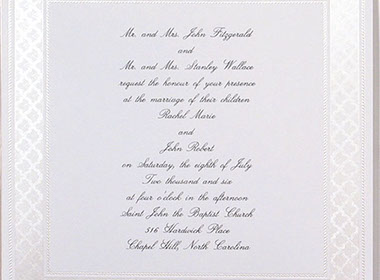 Mr. and Mrs. John Fitzgerald
and
Mr. and Mrs. Stanley Wallace
request the honour of your presence
at the marriage of their children
Rachel Marie
and
John Robert
on Saturday, the eighth of July
Two thousand and six
at four o'clock in the afternoon
Saint John the Baptist Church
516 Hardwick Place
Chapel Hill, North Carolina